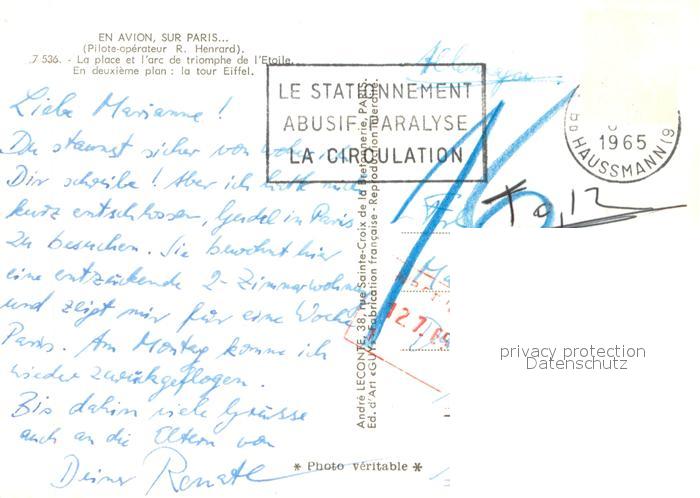 EN AVION, SUR PARIS...
(Pilote-opérateur R. Henrard).
7 536. - La place et l'arc de triomphe de l'Etoile.
En deuxième plan : la tour Eiffel.
Liebe Marianne !
Du staunst sicher von wo
Dir schreibe ! Aber ich
kurz entschlossen, in Paris
zu besuchen. Sie bewohnt hier
eine entzückende 2-Zimmerwohn
und zeigt mir für eine Woche
Paris. Am Montag komme ich
wieder zurückgeflogen.
Bis dahin viele Grüsse
auch an die Eltern von
Deiner Renate
LE STATIONNEMENT
ABUSIF PARALYSE
LA CIRCULATION
1965
HAUSSMANN (9
12.7.
André LECONTE, 38, rue Sainte-Croix de la Bretonnerie, PARIS.
Ed. d'Art «GUY» - Fabrication française - Reproduction interdite.
* Photo véritable *
privacy protection
Datenschutz